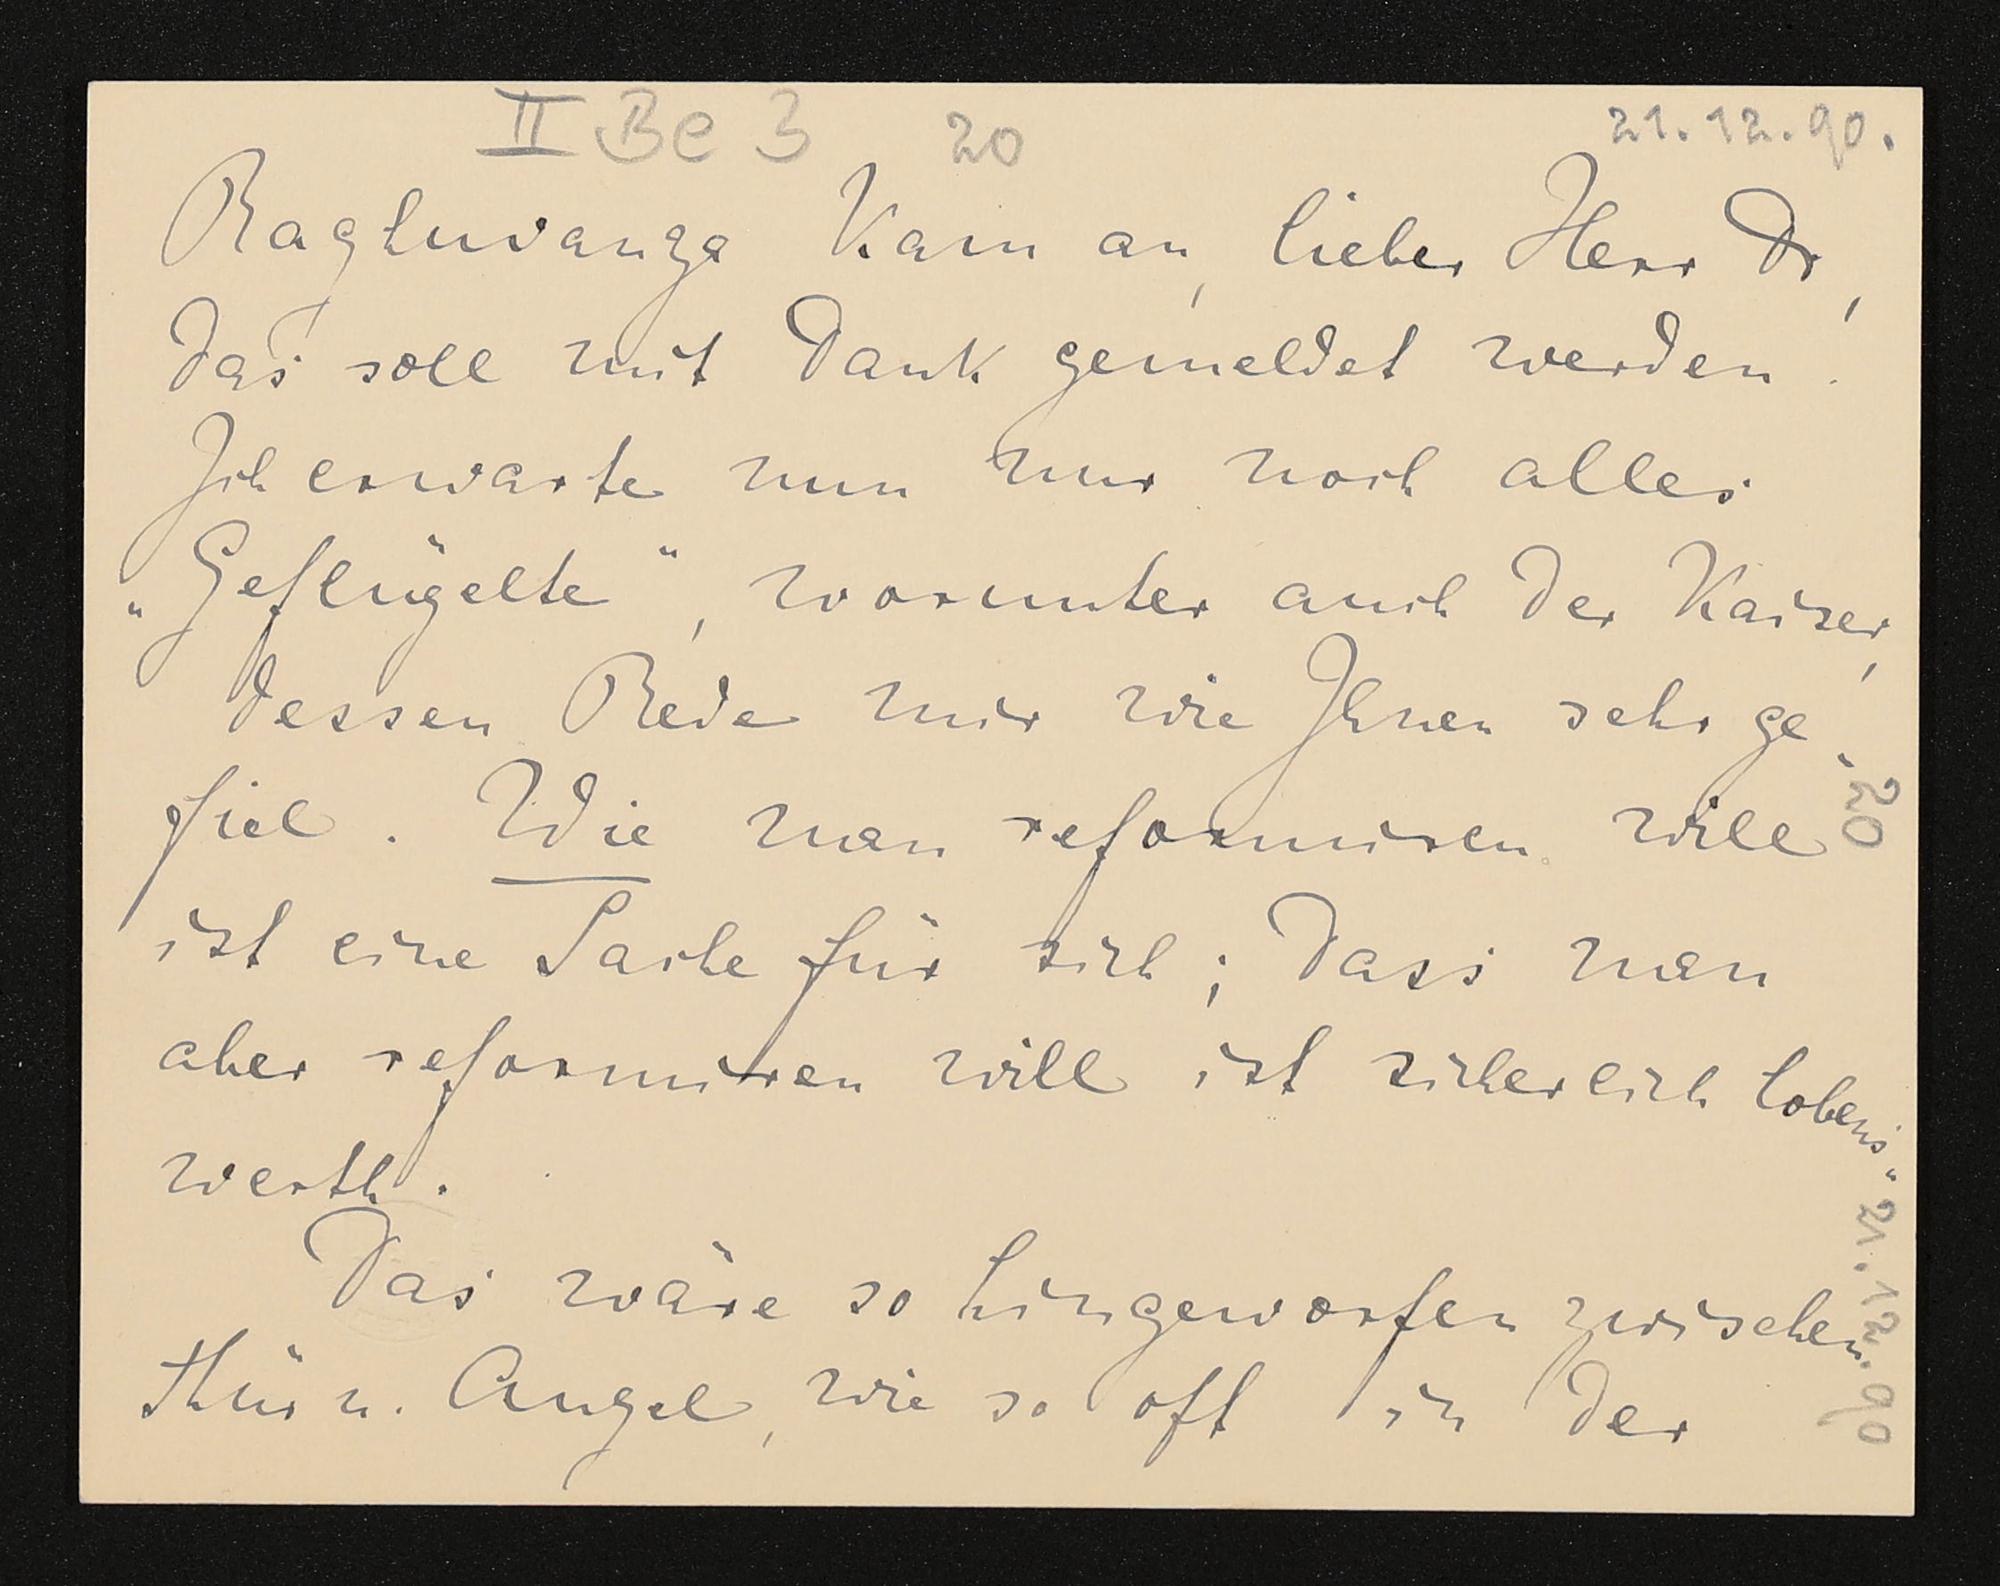 II Be 3 20 21.12.90.
Raghuvanga kam an, lieber Herr Dr,
das soll mit Dank gemeldet werden.
Ich erwarte nun nur noch alles
„Geflügelte“, worunter auch der Kaiser,
dessen Rede mir wie Ihnen sehr ge-
fiel. Wie man reformiren will
ist eine Sache für sich; dass man
aber reformiren will ist sicherlich lobens-
werth.
Das wäre so hingeworfen zwischen
Thür u. Angel, wie so oft in der
20
21.12.90